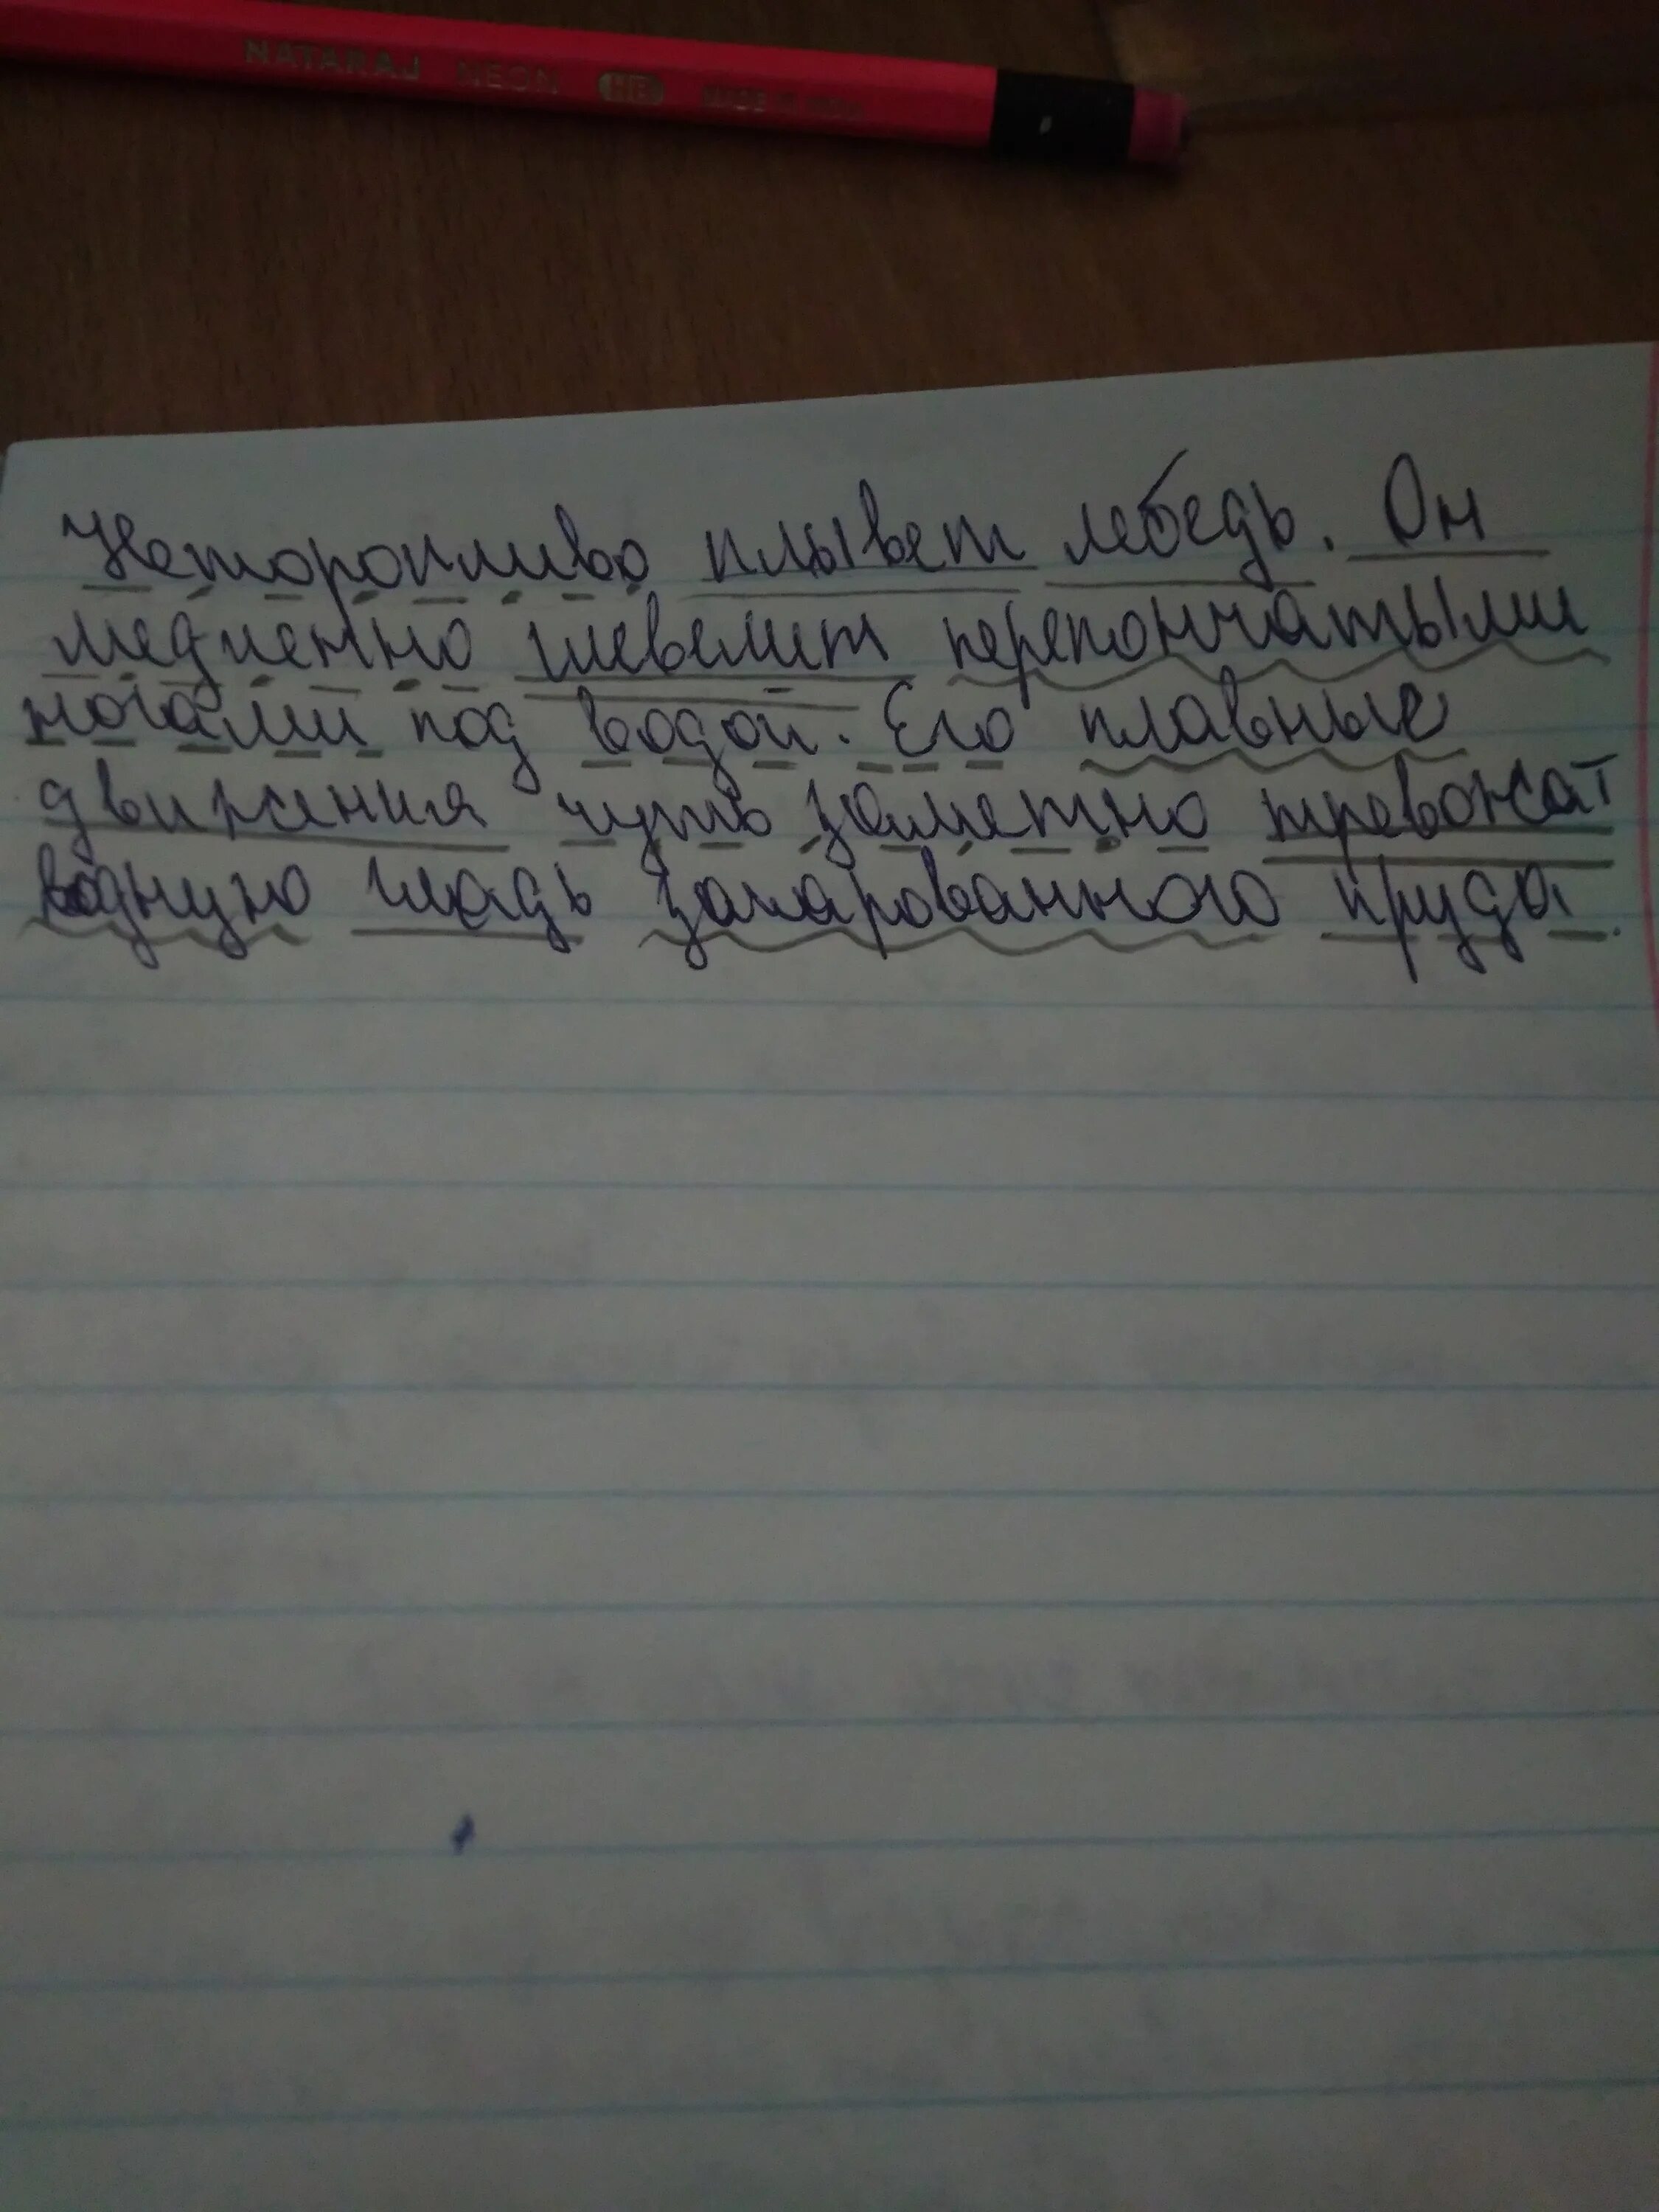 NATARAJ NEON HB MADE IN INDIA
Неторопливо плывет лебедь. Он
медленно шевелит перепончатыми
ногами под водой. Его плавные
движения чуть заметно тревожат
водную гладь зачарованного пруда.